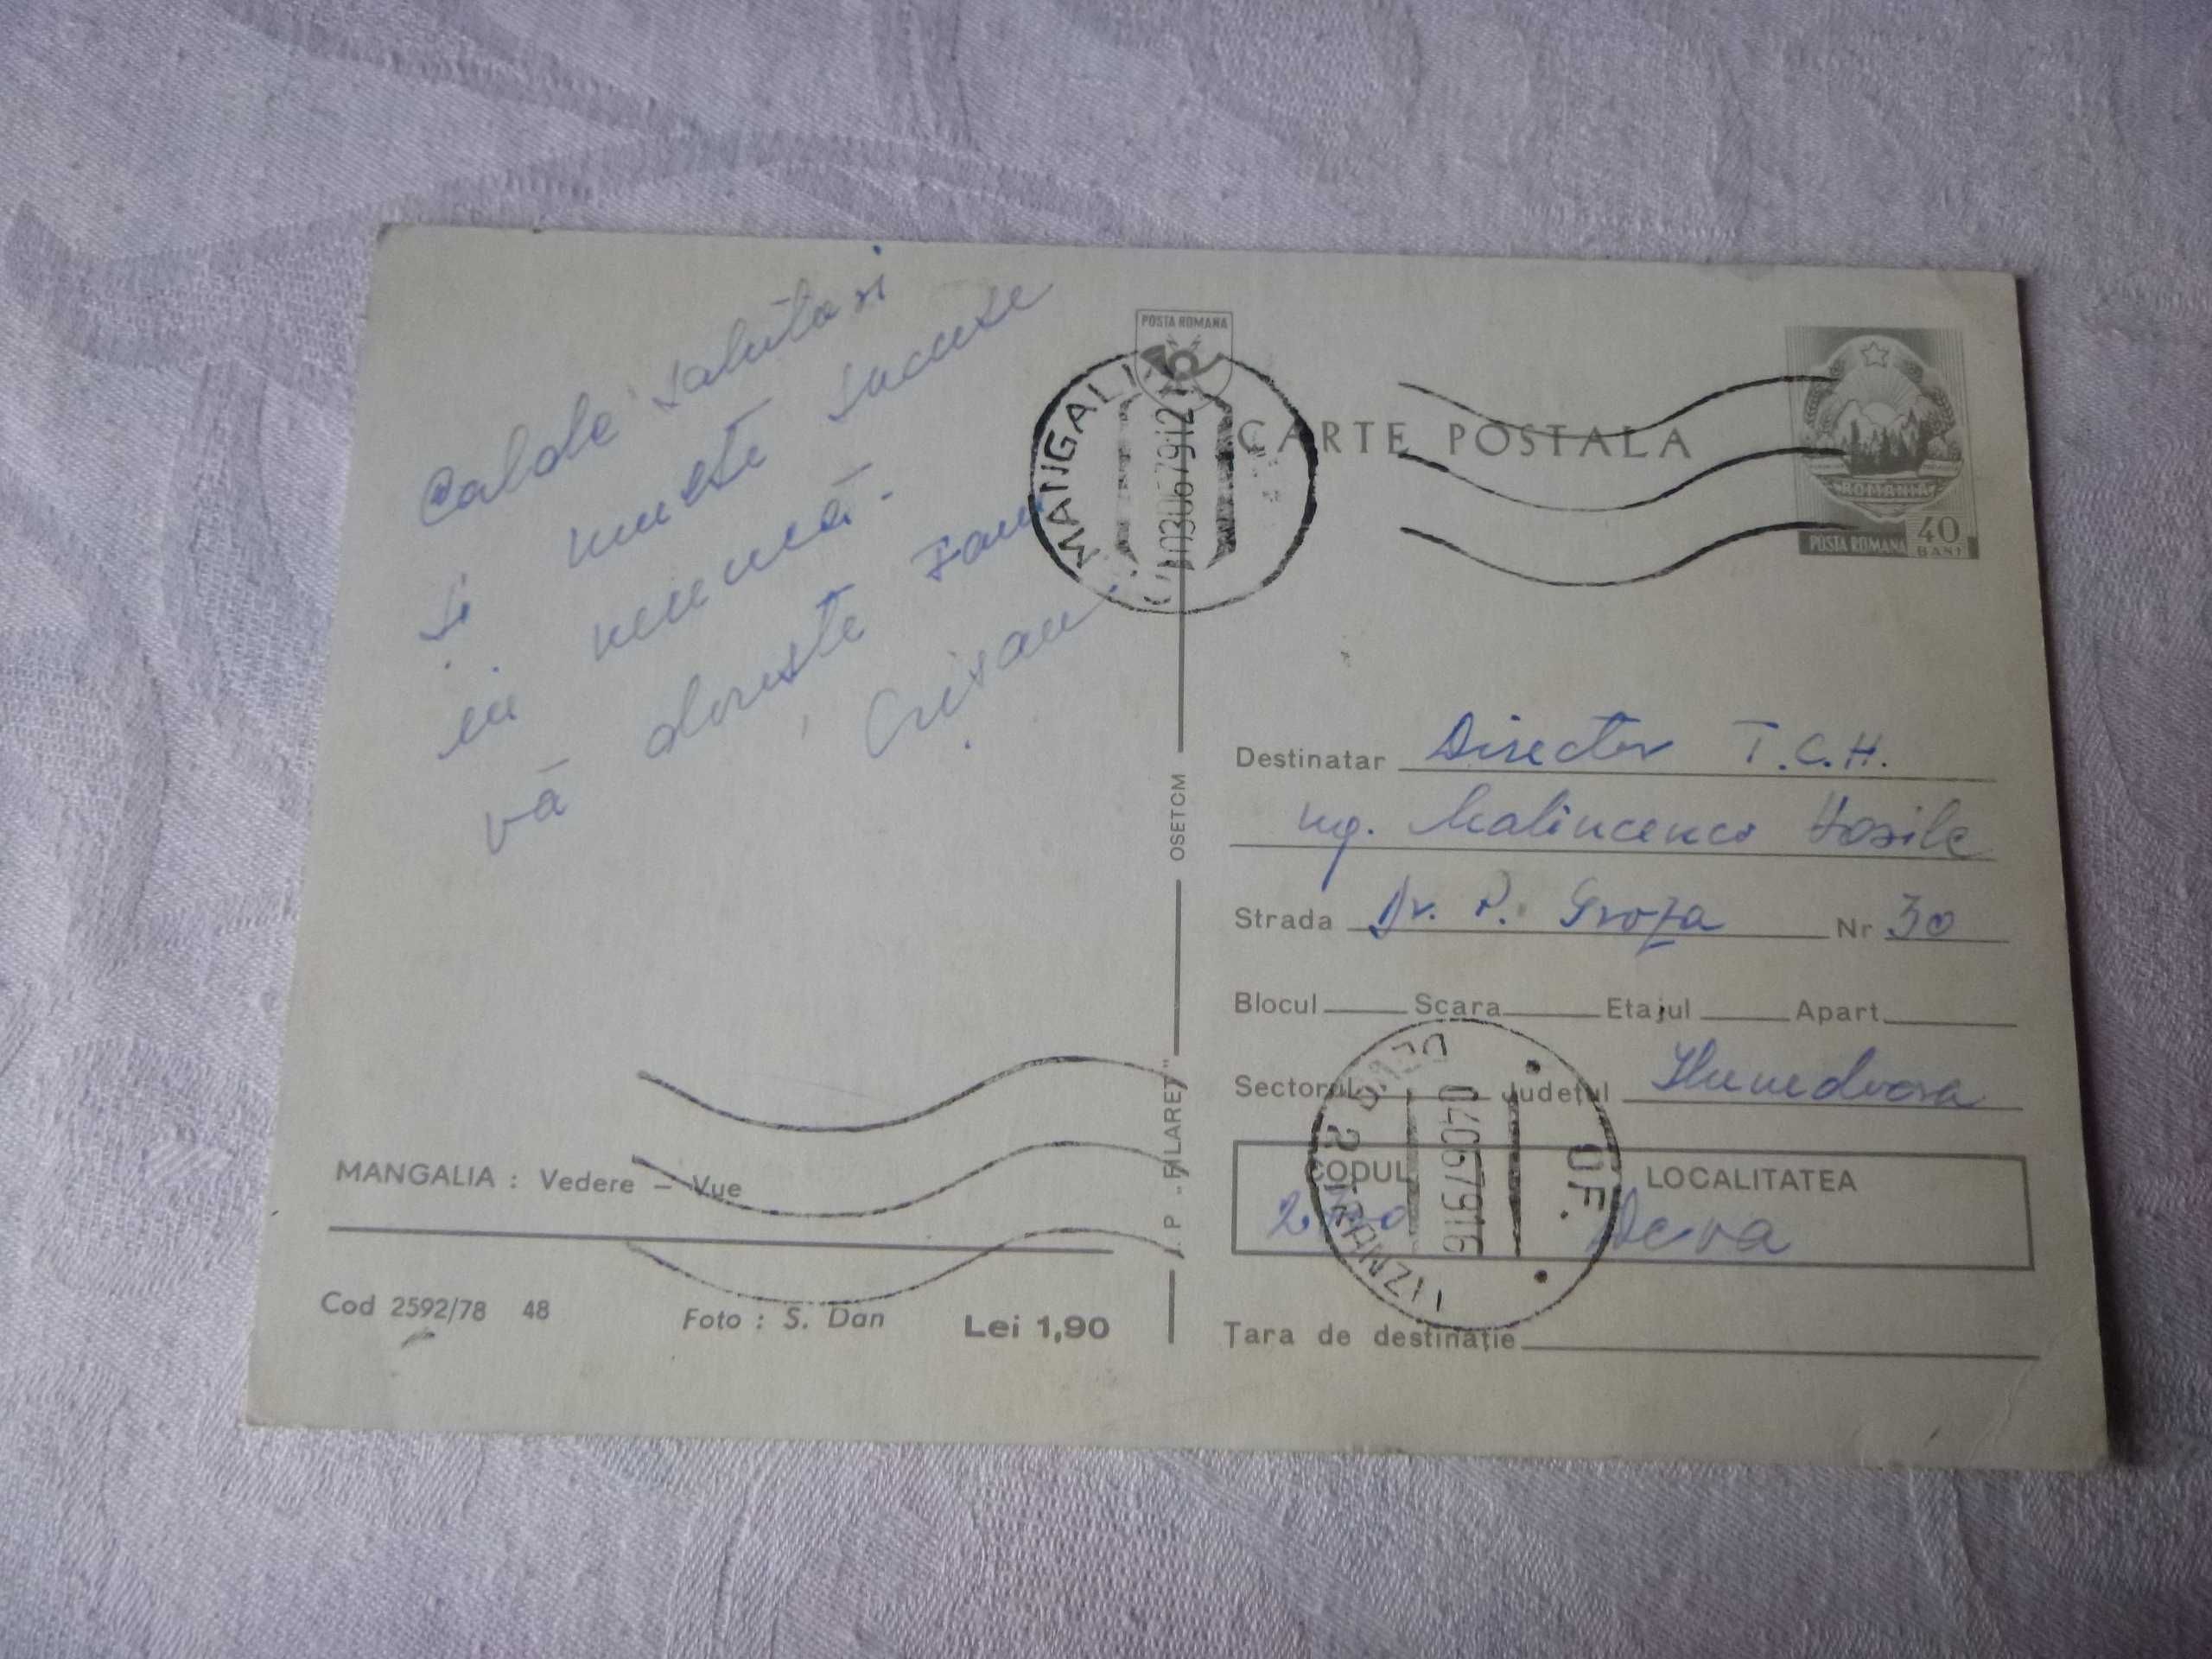 Calde salutari
și multe succese
în muncă.
vă dorește Fam
Crișan
MANGALIA : Vedere – Vue
Cod 2592/78 48
Foto : S. Dan
Lei 1,90
I. P. „FILARET"
OSETCM
POSTA ROMANA
MANGALIA
030679 12
CARTE POSTALA
ROMANIA
POSTA ROMANA
40
BANI
Destinatar Director T.C.H.
ing. Malincenco Vasile
Strada Dr. P. Groza Nr 30
Blocul Scara Etajul Apart
Sectorul Județul Hunedoara
CODUL LOCALITATEA
Deva
DEVA 2 TRANZIT
040679 16
OF.
Țara de destinație